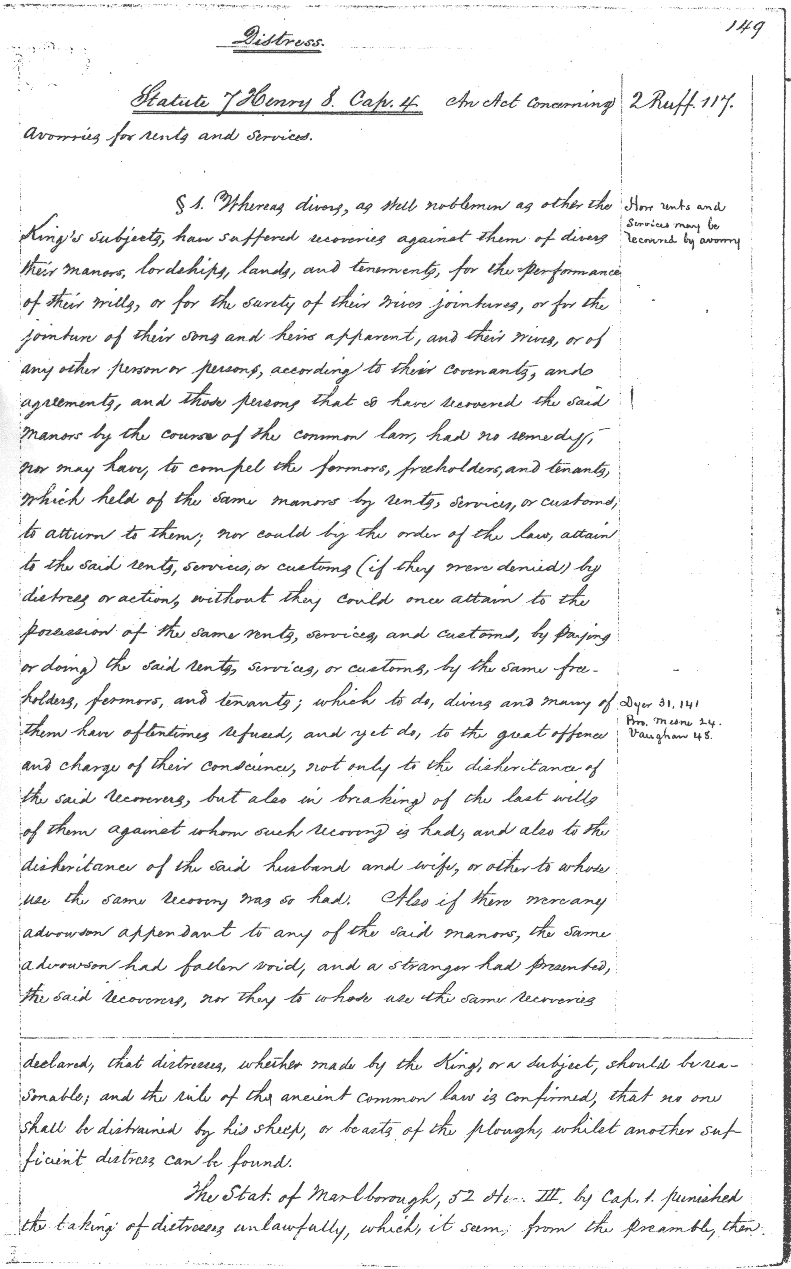 149
Distress.
Statute 7 Henry 8. Cap. 4 An Act concerning
avowries for rents and services.
2 Ruff. 117.
§ 1. Whereas divers, as well noblemen as other the
King's subjects, have suffered recoveries against them of divers
their manors, lordships, lands, and tenements, for the performance
of their wills, or for the surety of their wives jointures, or for the
jointure of their sons and heirs apparent, and their wives, or of
any other person or persons, according to their covenants, and
agreements, and those persons that so have recovered the said
manors by the course of the common law, had no remedy,
nor may have, to compel the fermors, freeholders, and tenants,
which held of the same manors by rents, services, or customs,
to atturn to them; nor could by the order of the law, attain
to the said rents, services, or customs (if they were denied) by
distress or action, without they could once attain to the
possession of the same rents, services, and customs, by paying
or doing the said rents, services, or customs, by the same free-
holders, fermors, and tenants; which to do, divers and many of
them have oftentimes refused, and yet do, to the great offence
and charge of their conscience, not only to the disheritance of
the said recoverers, but also in breaking of the last wills
of them against whom such recovery is had, and also to the
disheritance of the said husband and wife, or other to whose
use the same recovery was so had. Also if there were any
advowson appendant to any of the said manors, the same
advowson had fallen void, and a stranger had presented,
the said recoverers, nor they to whose use the same recoveries
How rents and
services may be
recovered by avowry
Dyer 31, 141
Bro. mesne 24.
Vaughan 48.
declared, that distresses, whether made by the King, or a subject, should be rea-
sonable; and the rule of the ancient common law is confirmed, that no one
shall be distrained by his sheep, or beasts of the plough, whilst another suf-
ficient distress can be found.
The Stat. of Marlborough, 52 He. III. by Cap. 1. punished
the taking of distresses unlawfully, which, it seems, from the preamble, then